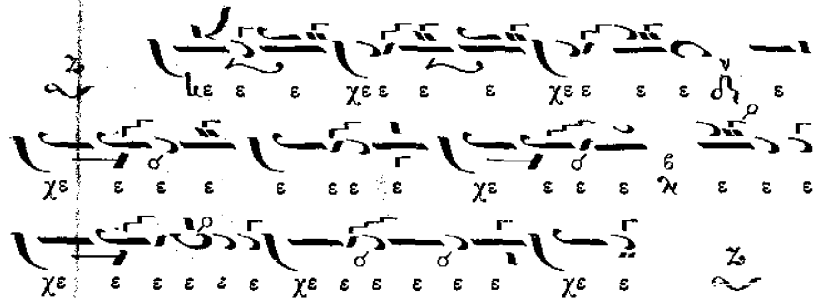 με ε ε χε ε ε ε χε ε ε ε ε
χε ε ε ε ε ε ε ε χε ε ε ε ε ε ε
χε ε ε ε ε ε χε ε ε ε ε ε ε χε ε